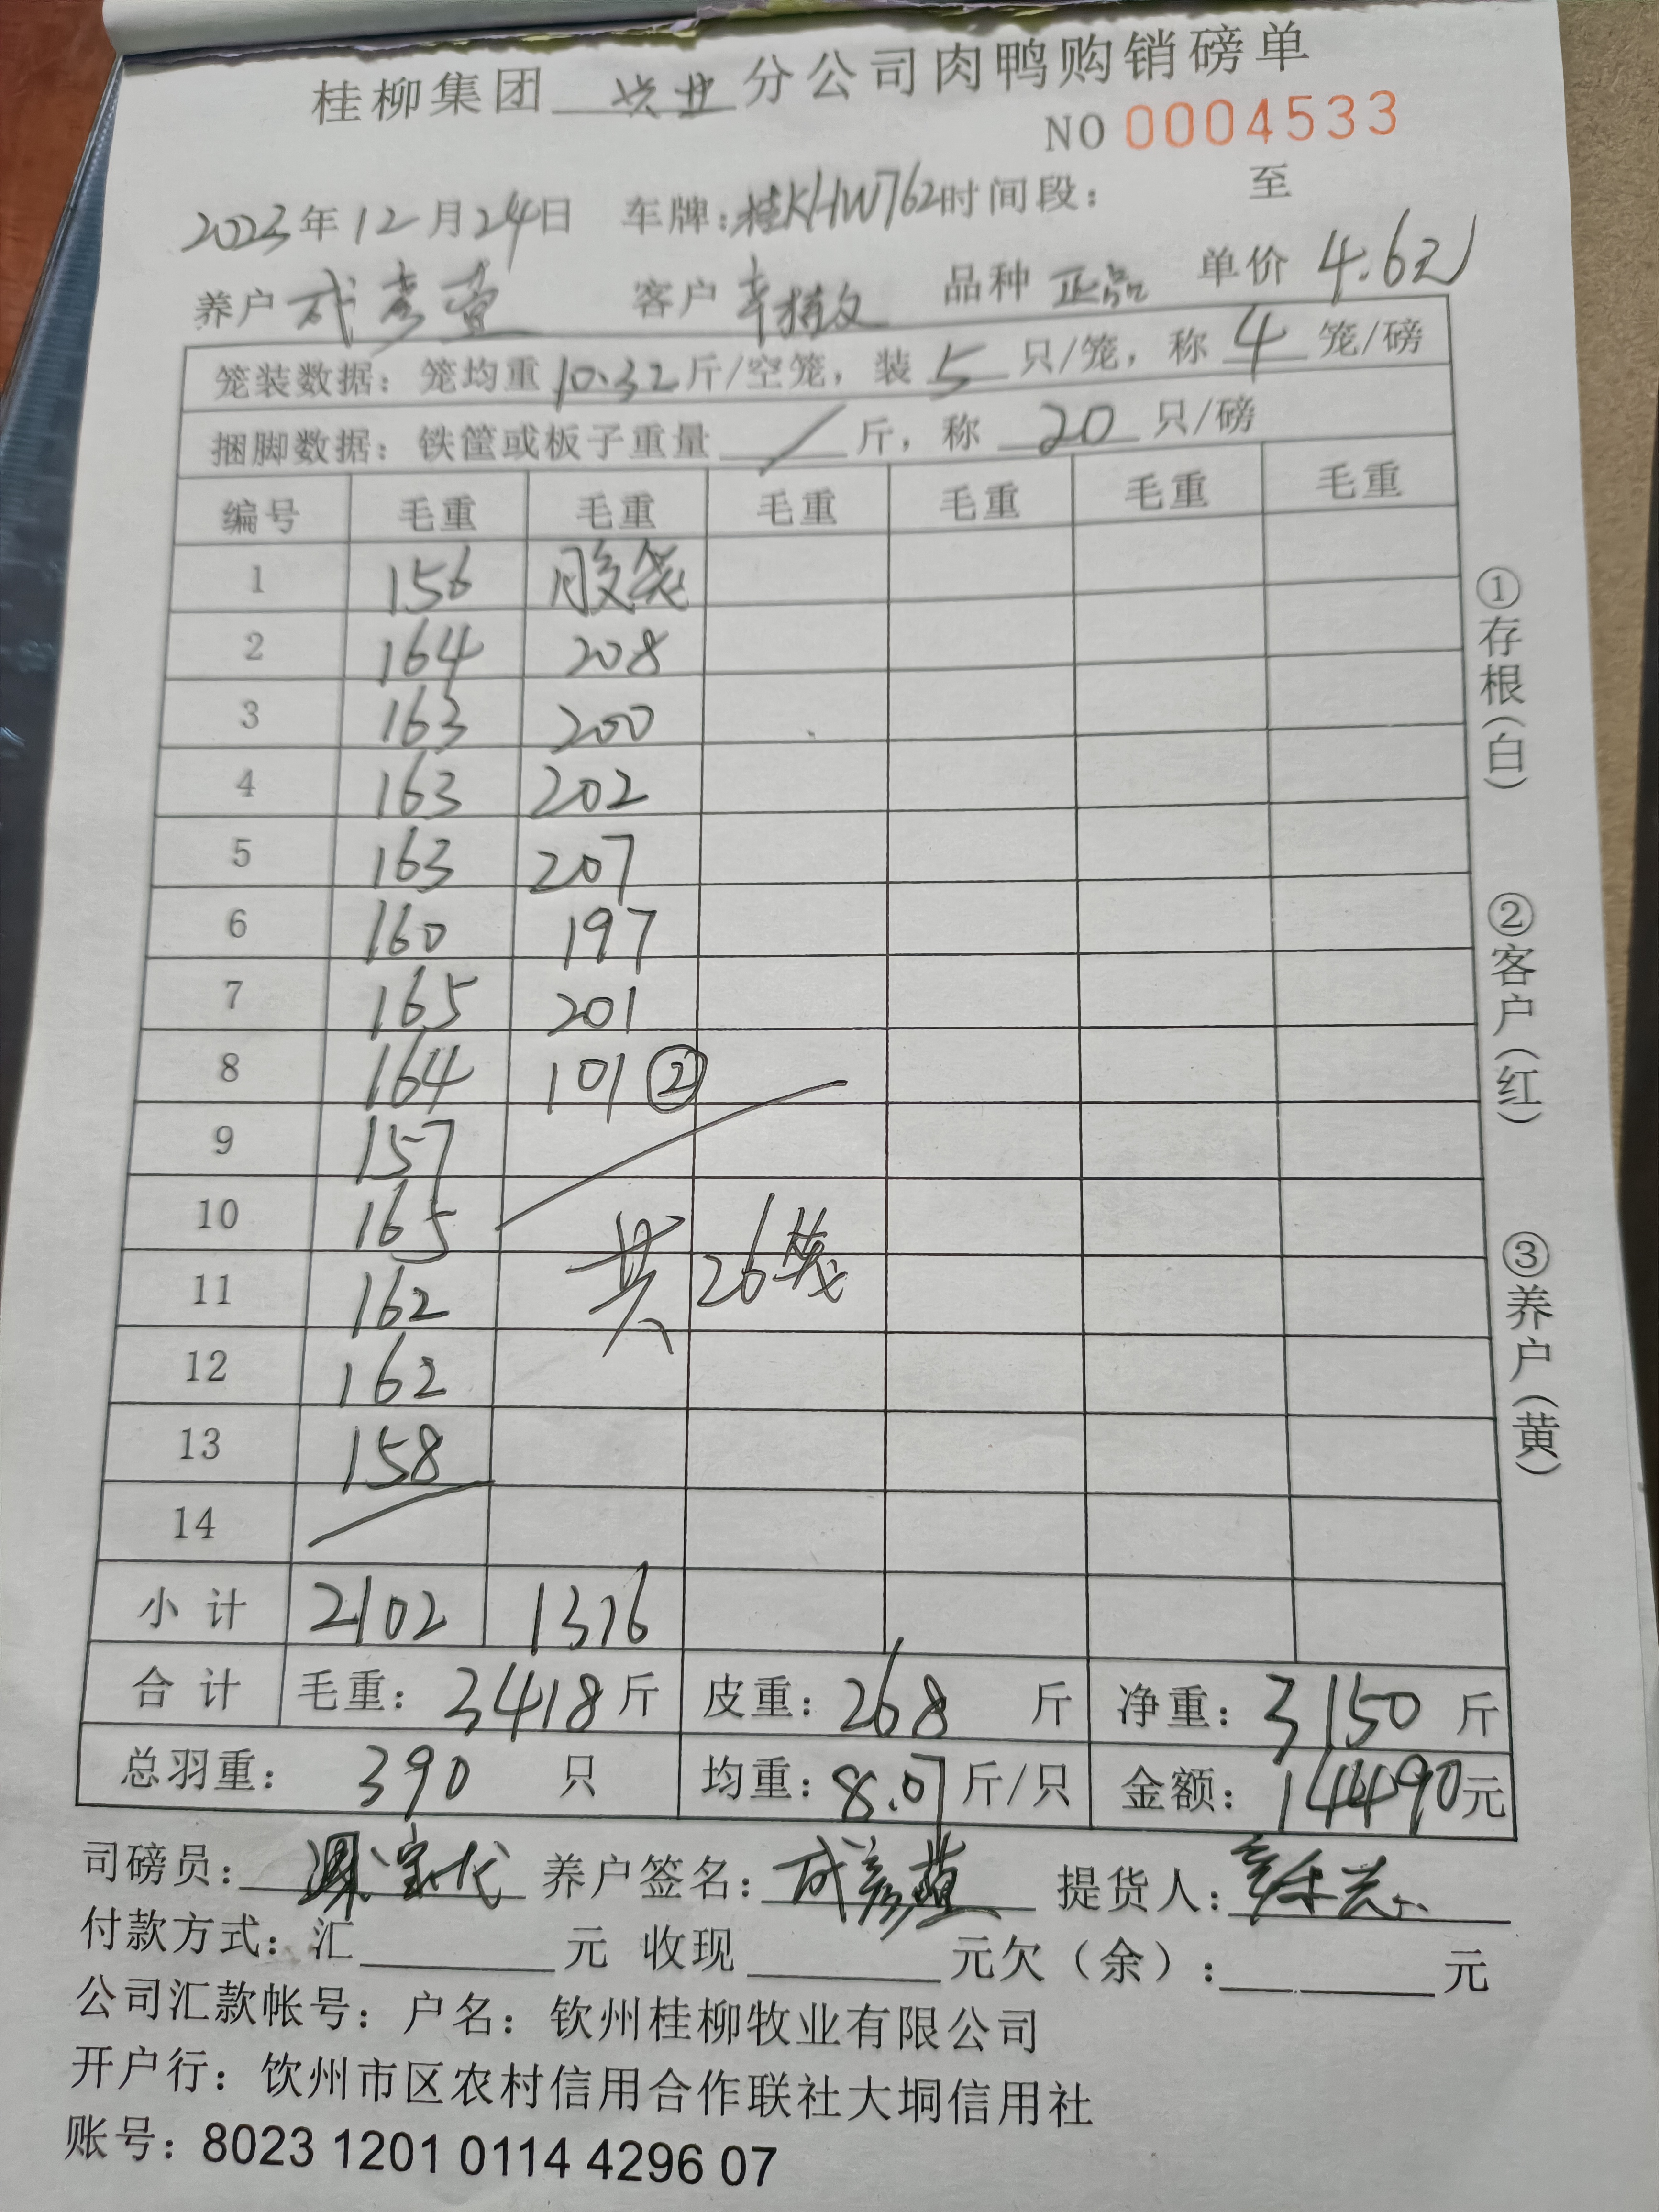 桂柳集团 兴业 分公司肉鸭购销磅单
NO 0004533
2023年12月24日 车牌:桂KHW762时间段: 至
养户 客户 品种 正品 单价 4.6元
笼装数据: 笼均重10.32斤/空笼, 装 5 只/笼, 称 4 笼/磅
捆脚数据: 铁筐或板子重量 / 斤, 称 20 只/磅
编号 毛重 毛重 毛重 毛重 毛重 毛重
1 156 胶笼
2 164 208
3 163 200
4 163 202
5 163 207
6 160 197
7 165 201
8 164 101②
9 157
10 165
11 162 共26笼
12 162
13 158
14
小计 2102 1316
合计 毛重: 3418斤 皮重: 268 斤 净重: 3150 斤
总羽重: 390 只 均重: 8.07斤/只 金额: 14490元
①存根(白)
②客户(红)
③养户(黄)
司磅员: 养户签名: 提货人:
付款方式: 汇 元 收现 元欠(余): 元
公司汇款帐号: 户名: 钦州桂柳牧业有限公司
开户行: 钦州市区农村信用合作联社大垌信用社
账号: 8023 1201 0114 4296 07